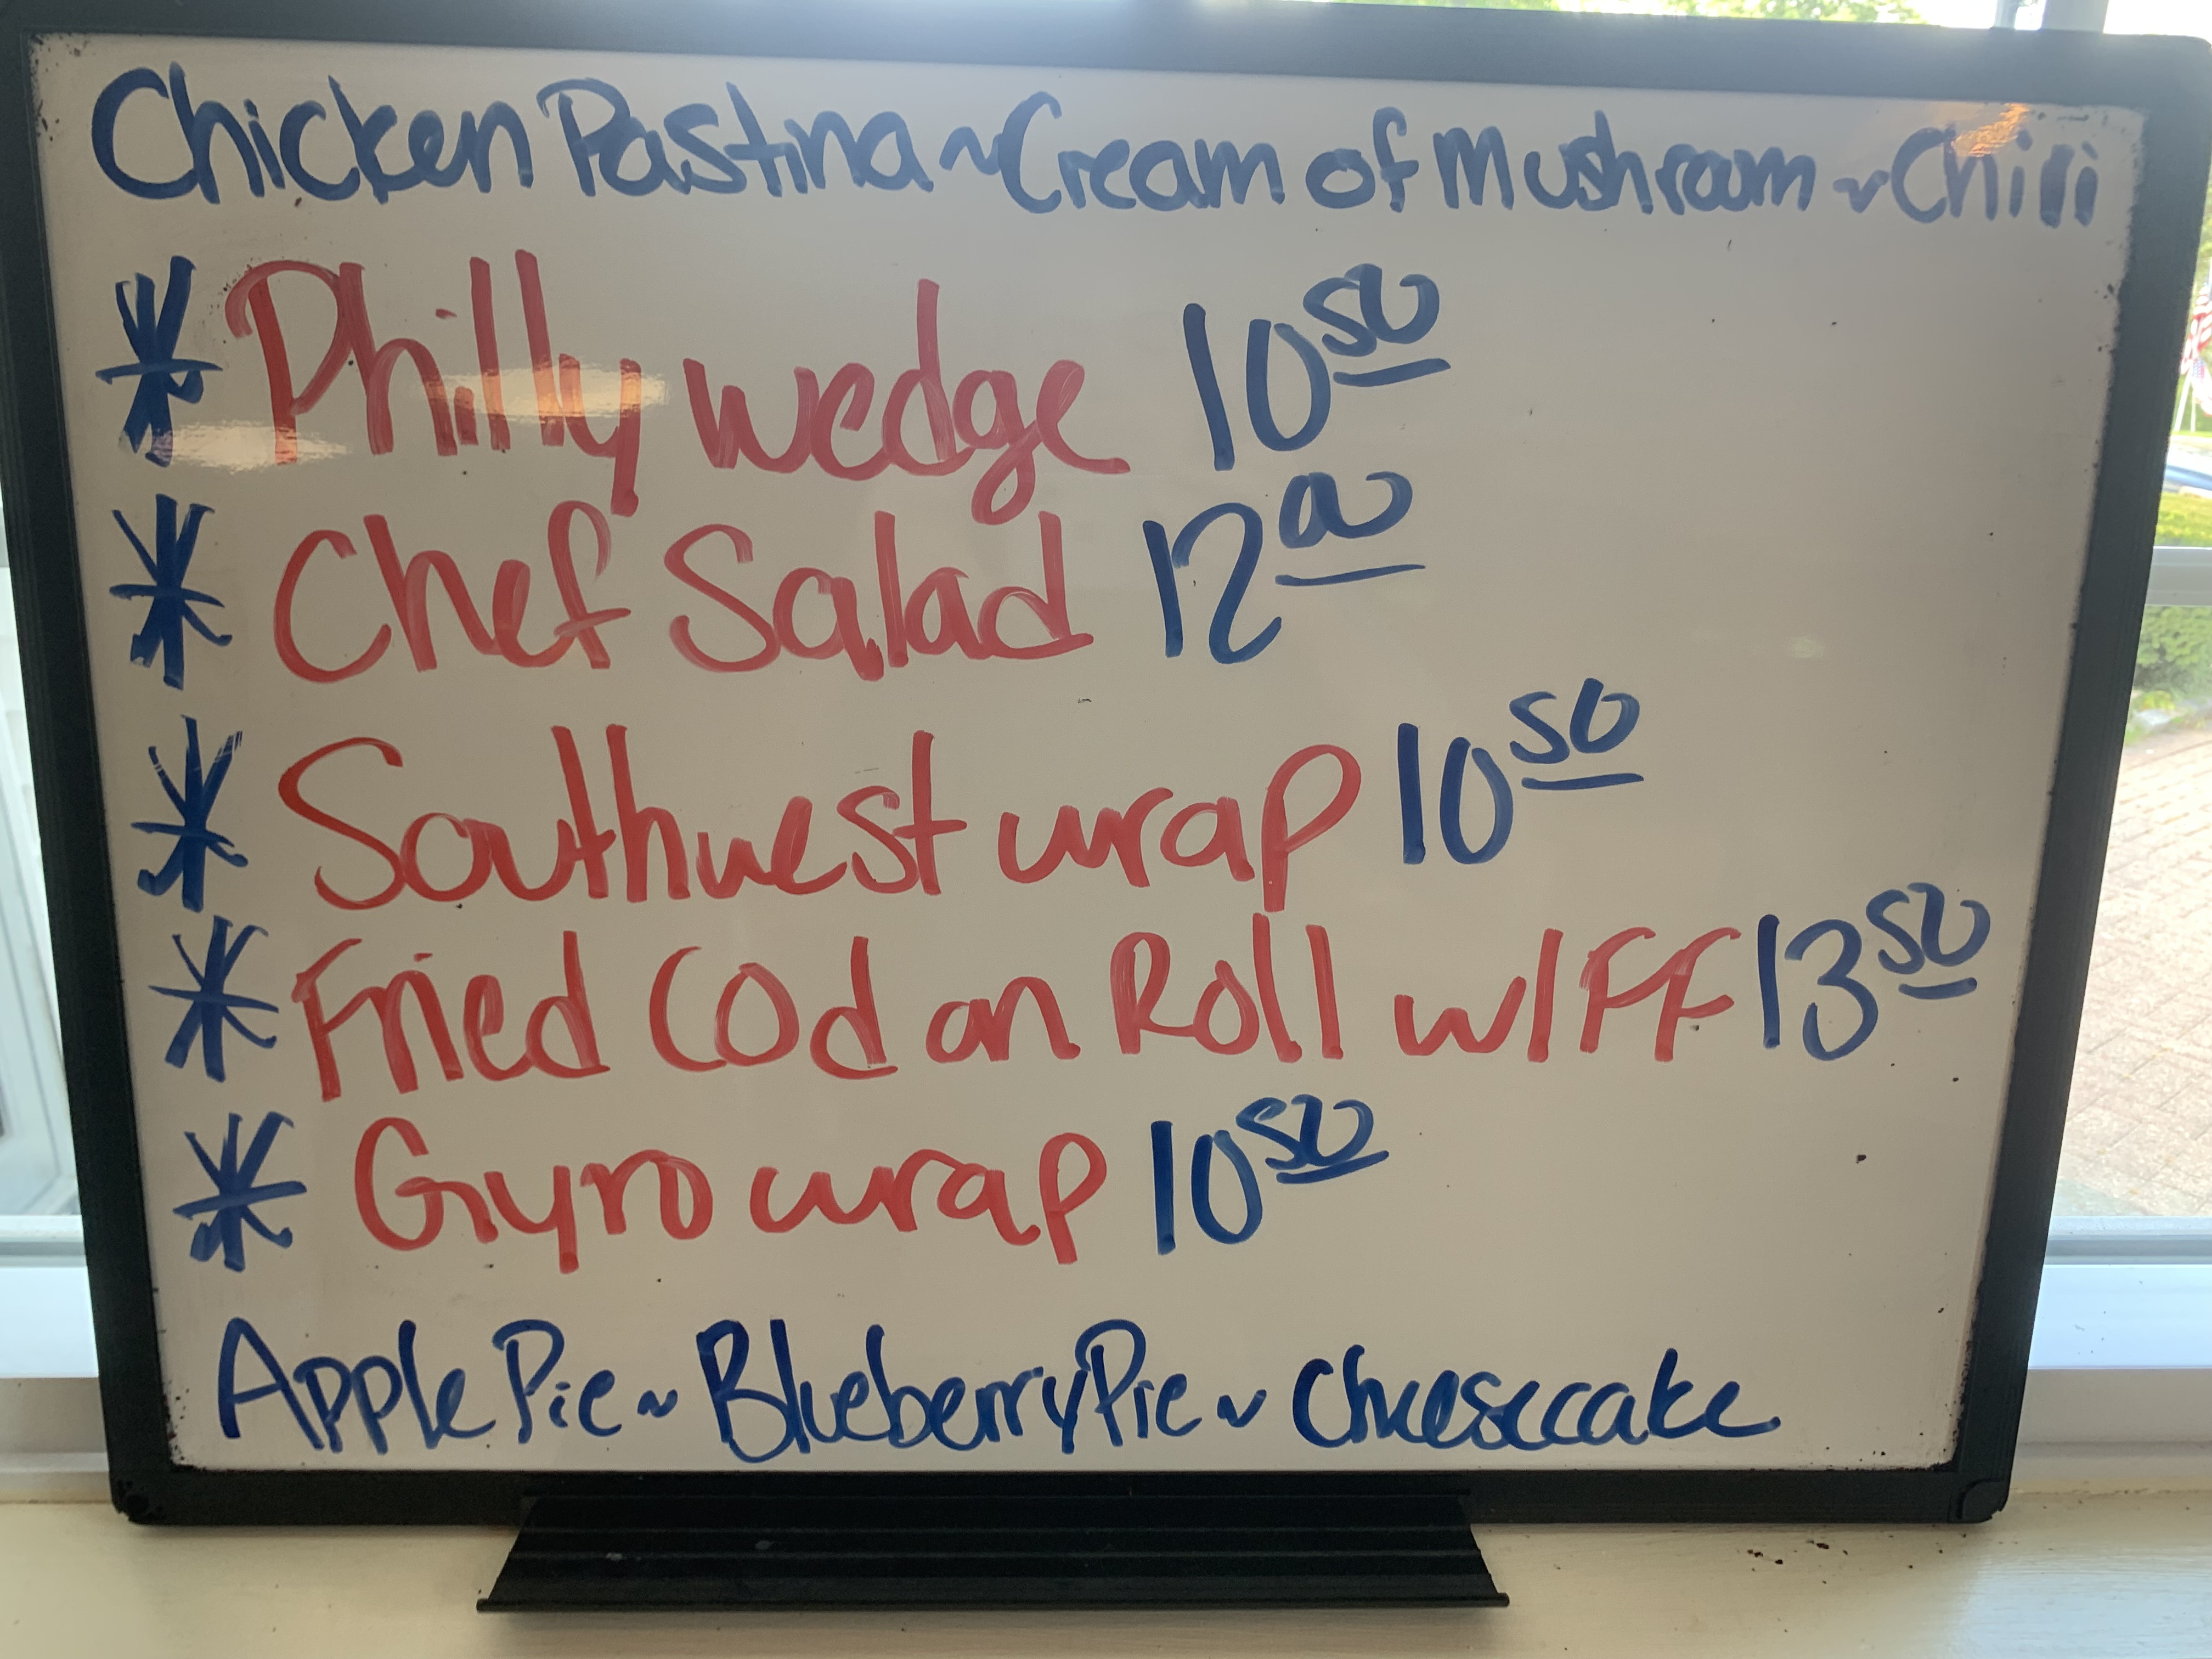 Chicken Pastina ~ Cream of Mushroom ~ Chili
* Philly wedge 10 50
* Chef Salad 12 00
* Southwest wrap 10 50
* Fried Cod on Roll w/FF 13 50
* Gyro wrap 10 50
Apple Pie ~ Blueberry Pie ~ Cheesecake